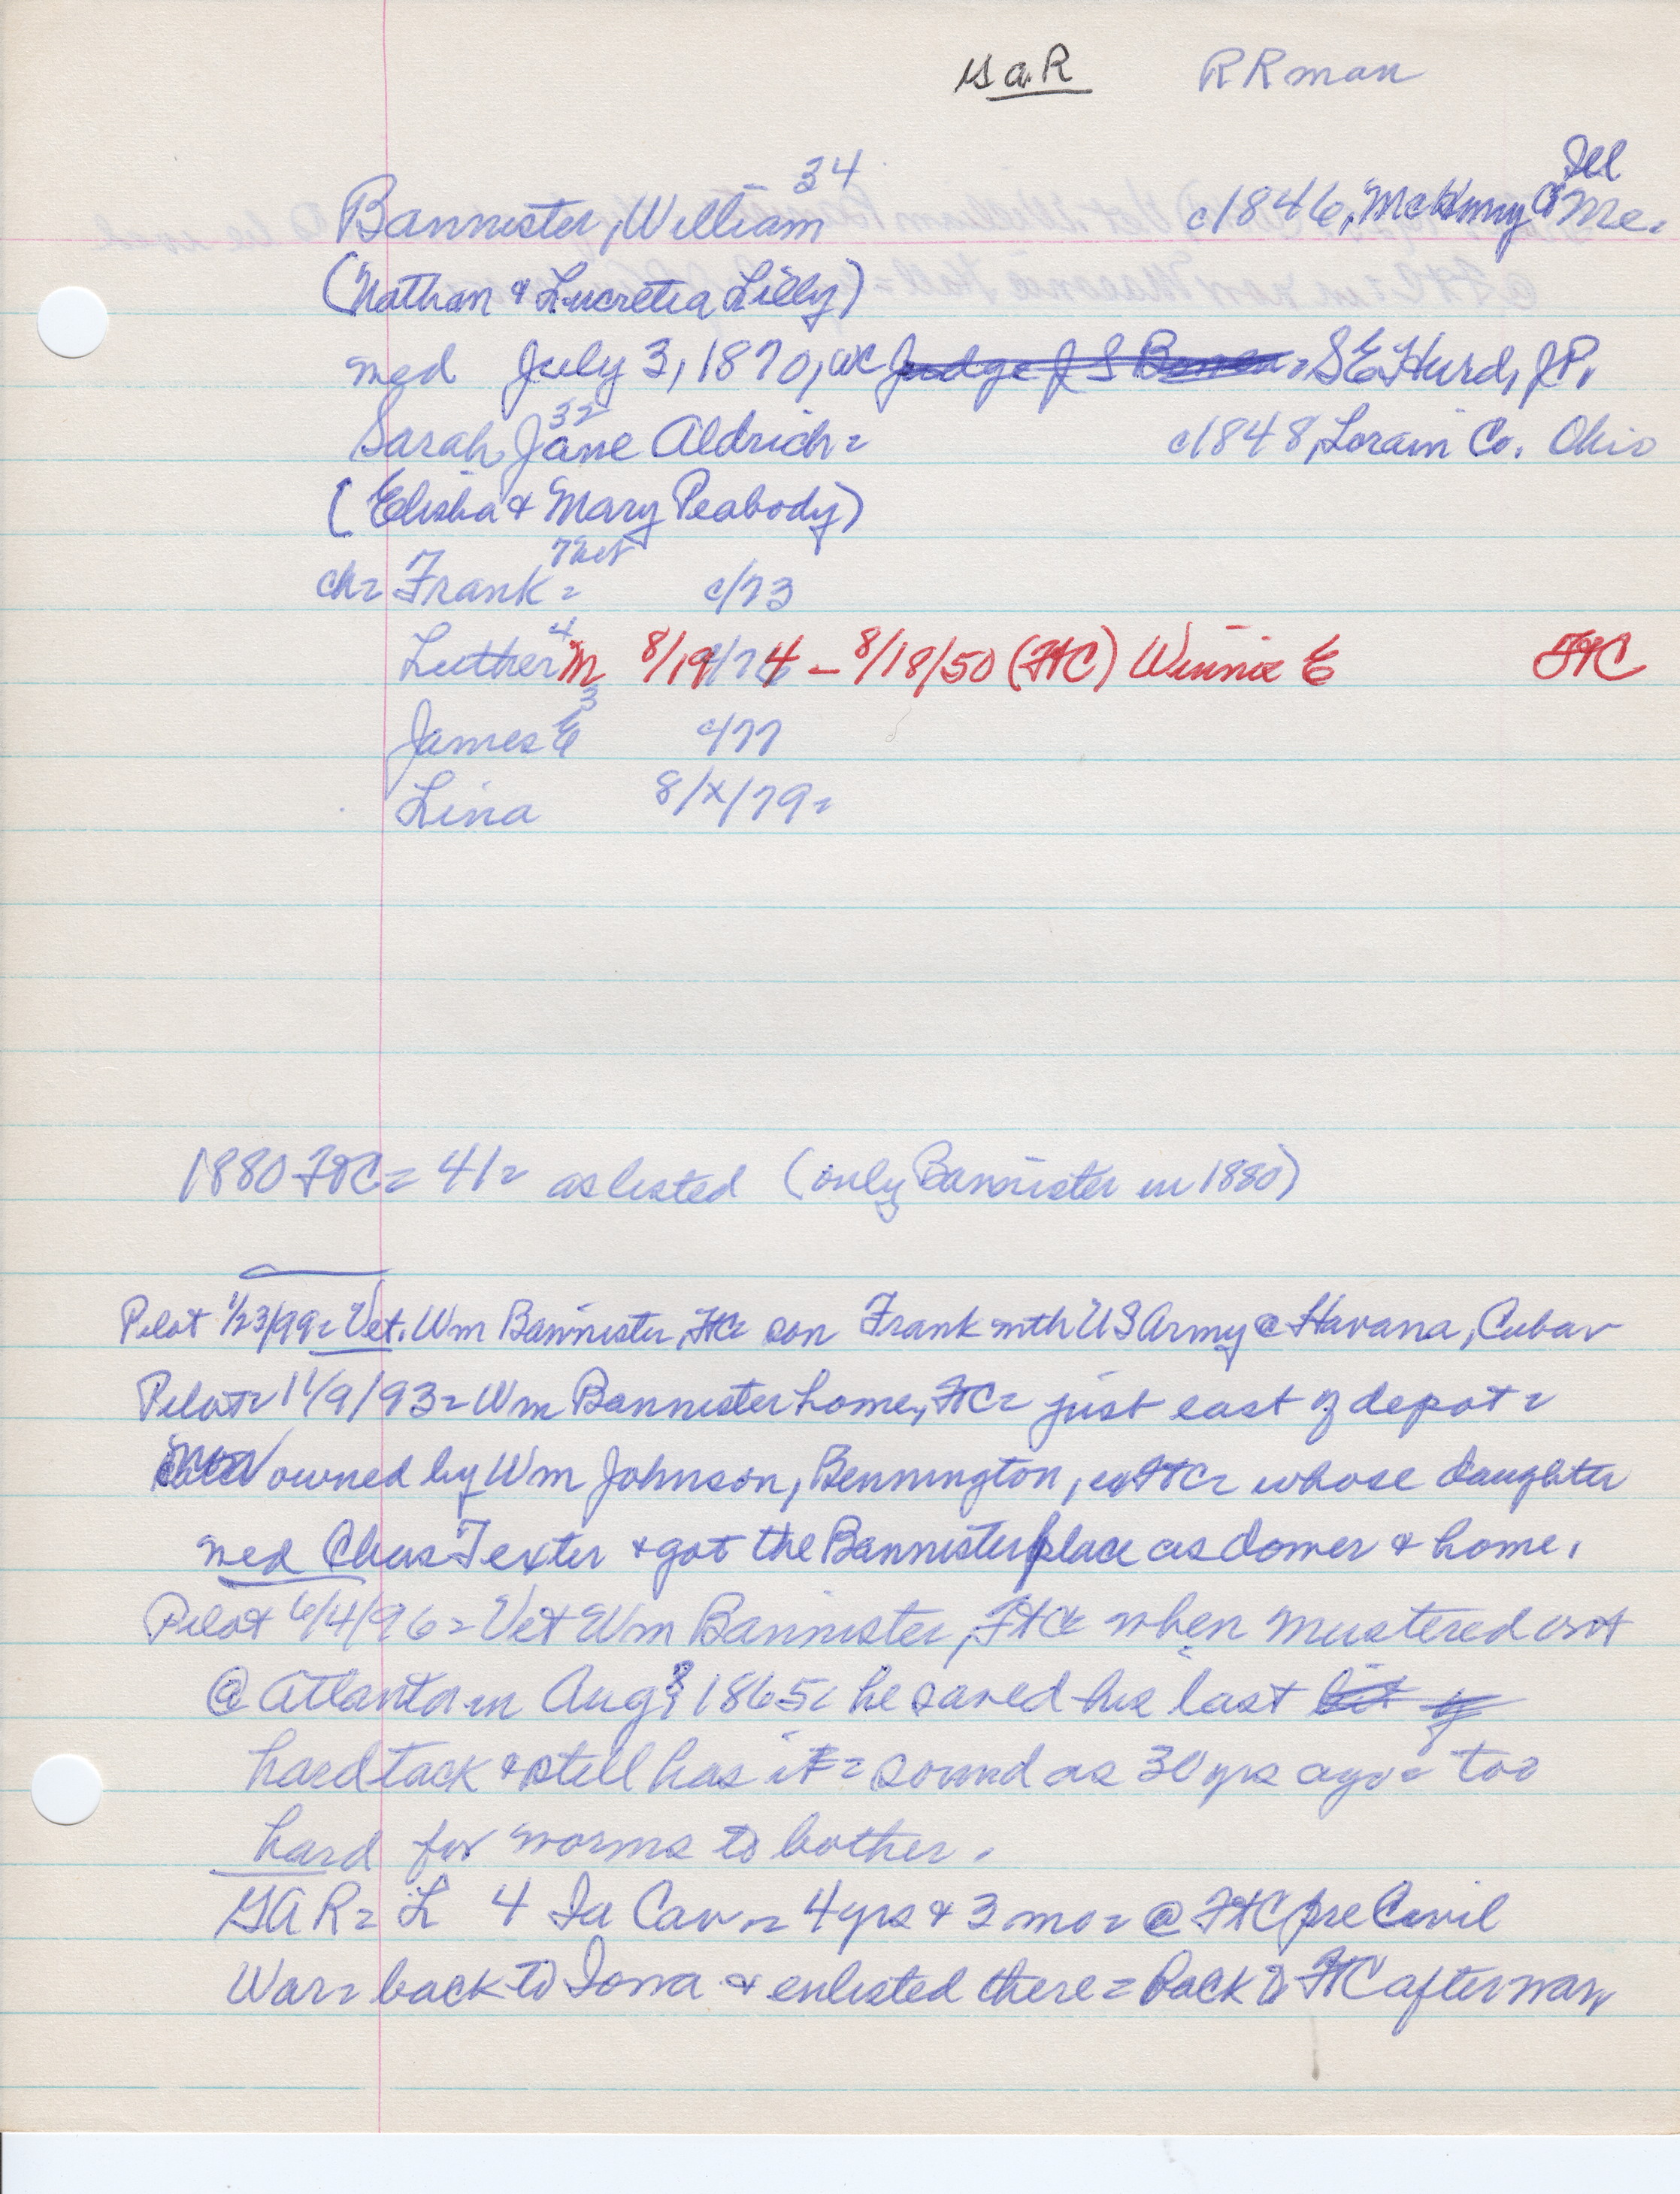 GaR RRman
34 Ill
Bannister, William c1846, McHenry Co Me.
(Nathan & Lucretia Lilly)
med July 3, 1870, WC Judge J S = SE Hurd, JP.
32
Sarah Jane Aldrich= c1848, Lorain Co. Ohio
(Elisha & Mary Peabody)
ch= Frank = 7 c/73
Luther M 4 8/19/74 – 8/18/50 (FtC) Winnie E FtC
James E 3 c/77
Lina 8/x/79=
1880 FtC= 41= as listed (only Bannister in 1880)
Pilot 1/23/99= Vet. Wm Bannister, FtC= son Frank with US Army @ Havana, Cuba
Pilot= 11/9/93= Wm Bannister home, FtC= just east of depot=
owned by Wm Johnson, Bennington, ex FtC= whose daughter
med Chas Texter & got the Bannister place as dower & home.
Pilot 6/4/96= Vet Wm Bannister, FtC= when mustered out
@ Atlanta in Aug 1865= he saved his last bit of
hardtack & still has it= sound as 30 yrs ago= too
hard for worms to bother.
GAR= L 4 Ia Cav= 4 yrs & 3 mo= @ FtC pre Civil
War= back to Iowa & enlisted there= Back to FtC after war